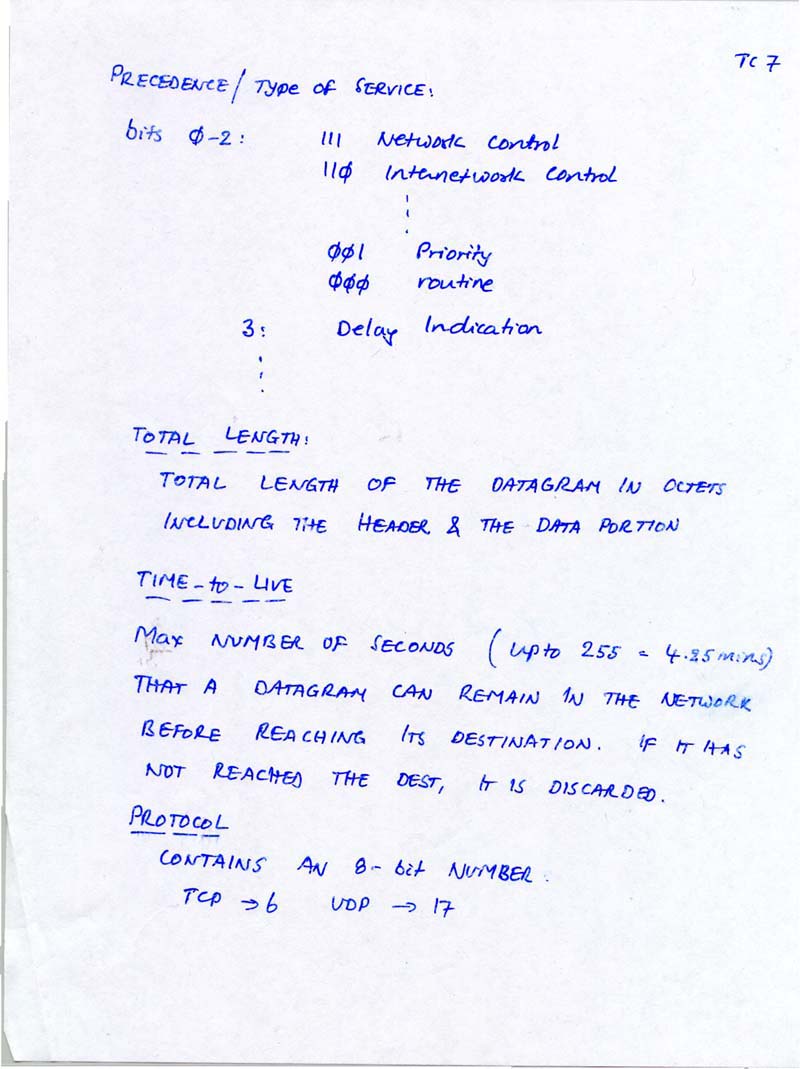 TC 7
PRECEDENCE / TYPE OF SERVICE:
bits 0-2: 111 Network control
110 Internetwork control
001 Priority
000 routine
3: Delay Indication
TOTAL LENGTH:
TOTAL LENGTH OF THE DATAGRAM IN OCTETS
INCLUDING THE HEADER & THE DATA PORTION
TIME-to-LIVE
Max NUMBER OF SECONDS (upto 255 = 4.25 mins)
THAT A DATAGRAM CAN REMAIN IN THE NETWORK
BEFORE REACHING ITS DESTINATION. IF IT HAS
NOT REACHED THE DEST, IT IS DISCARDED.
PROTOCOL
CONTAINS AN 8-bit NUMBER.
TCP → 6 UDP → 17